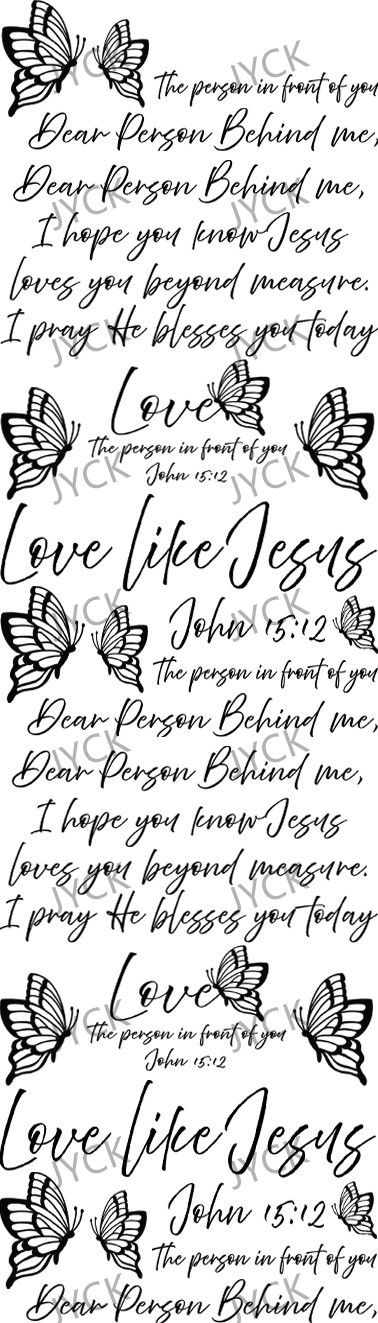 JYCK JYCK
The person in front of you
Dear Person Behind me,
Dear Person Behind me,
JYCK JYCK
I hope you know Jesus
loves you beyond measure.
I pray He blesses you today
JYCK JYCK
Love
The person in front of you
John 15:12
JYCK JYCK
Love like Jesus
JYCK JYCK
John 15:12
The person in front of you
Dear Person Behind me,
JYCK JYCK
Dear Person Behind me,
I hope you know Jesus
loves you beyond measure.
JYCK JYCK
I pray He blesses you today
Love
JYCK JYCK
The person in front of you
John 15:12
Love like Jesus
JYCK JYCK
John 15:12
The person in front of you
Dear Person Behind me,
JYCK JYCK